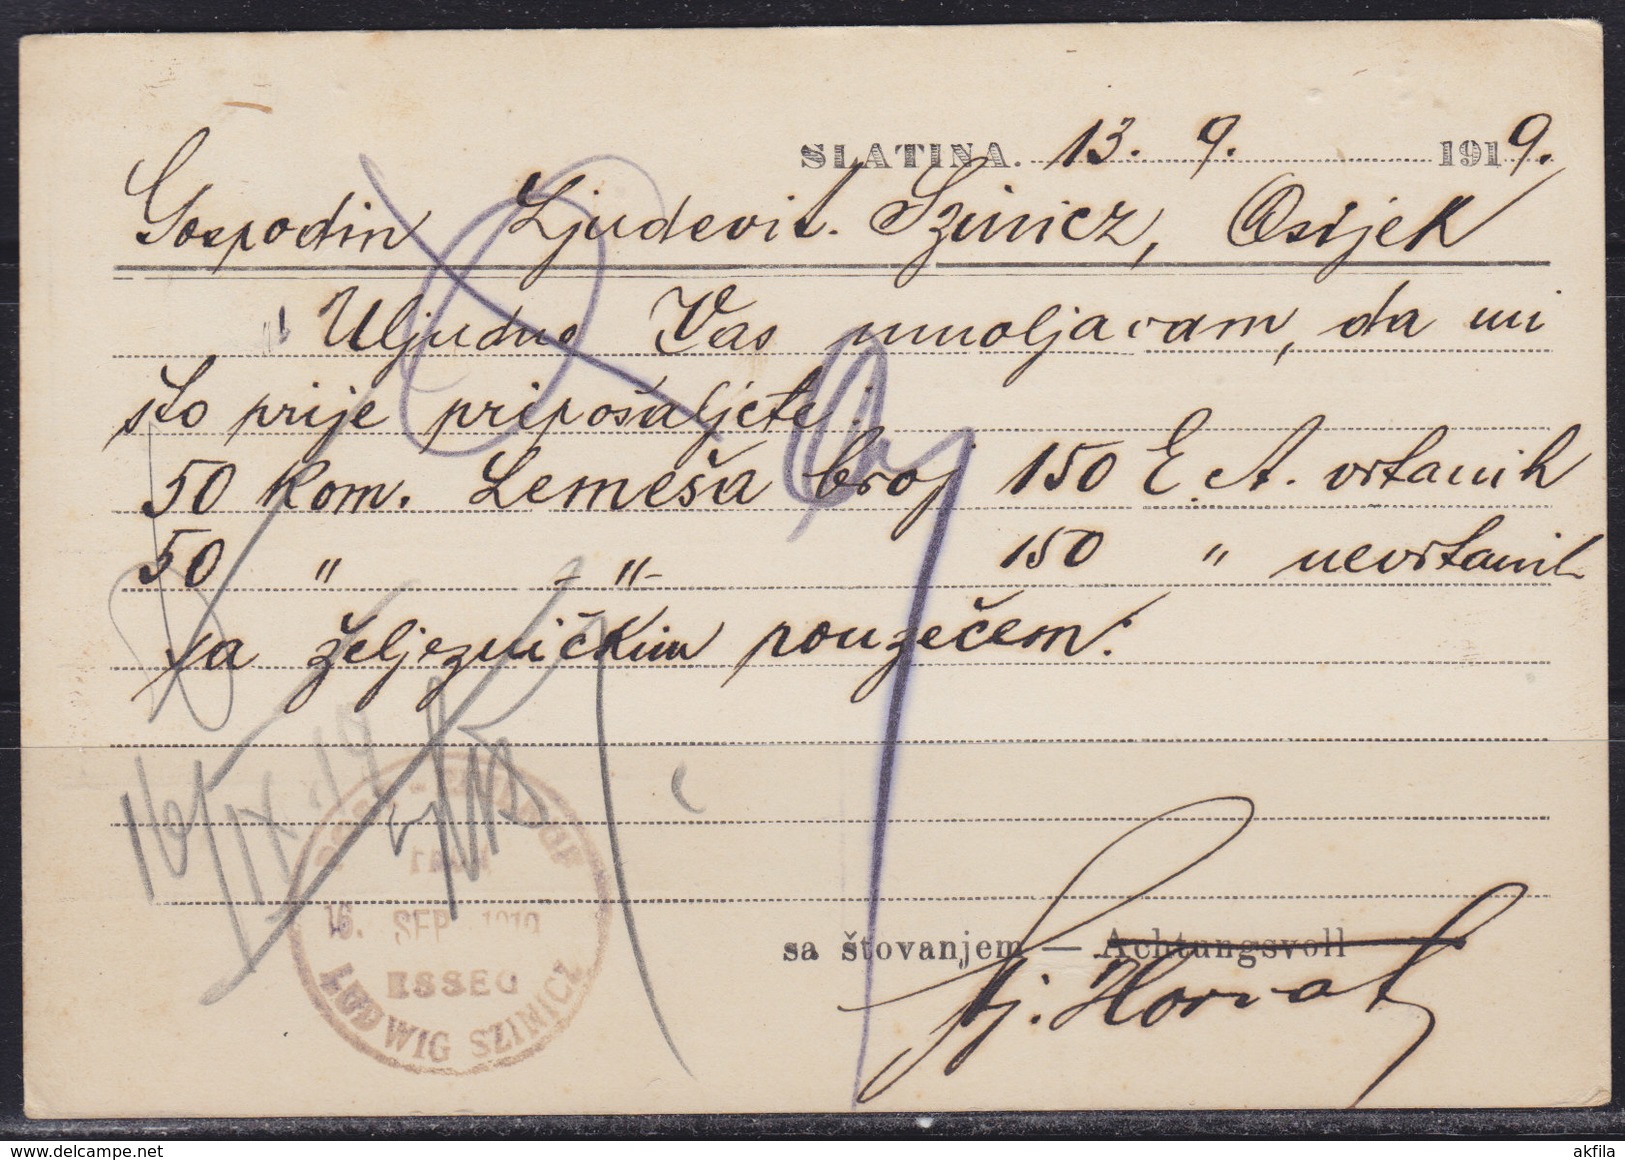 SLATINA. 13. 9. 1919.
Gospodin Ljudevit. Szinicz, Osijek
Uljudno Vas umoljavam, da mi
što prije pripošaljete:
50 kom. Lemeša broj 150 E. A. vrtanih
50 " -"- 150 " nevrtanih
sa željezničkim pouzećem.
16/IX 19
16. SEP. 1919
ESSEG
LUDWIG SZINICZ
sa štovanjem — Achtungsvoll
Lj. Horvat
akfila
www.delcampe.net